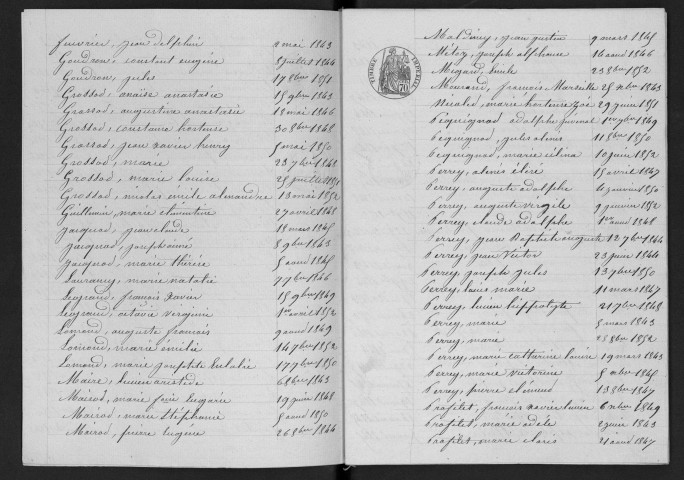 Fevrier, jean delphin 2 mai 1843
Goudron, constant eugène 8 juillet 1844
Goudron, jules 17 8bre 1851
Grossod, anaïse anastasie 15 9bre 1843
Grossod, augustine anastasie 18 mai 1846
Grossod, constance hortense 30 8bre 1848
Grossod, jean xavier henry 5 mai 1850
Grossod, marie 23 7bre 1848
Grossod, marie louise 25 juillet 1851
Grossod, nicolas émile alexandre 13 mai 1852
Guillemin, marie clémentine 27 avril 1848
Jacquand, jean claude 18 mars 1845
Jacquand, joséphine 8 9bre 1843
Jacquand, marie thérèse 5 aout 1845
Laurancy, marie natalie 7 7bre 1846
Legrand, françois xavier 15 9bre 1849
Legrand, octavie virginie 1er avril 1852
Lomond, auguste françois 9 aout 1849
Lomond, marie émilie 14 7bre 1852
Lomond, marie josephte Eulalie 17 7bre 1850
Maire, lucien aristide 6 8bre 1843
Mairod, marie fine Eugénie 19 juin 1848
Mairod, marie stéphanie 5 aout 1850
Mairod, pierre Eugène 26 8bre 1844
TIMBRE IMPERIAL
70
Maldiney, jean justin 9 mars 1845
Métoz, joseph alphonse 16 aout 1846
Mégard, Emile 23 8bre 1852
françois Marseille 25 xbre 1843
Nicolet, marie hortense Zoé 29 juin 1851
Pequignod adolphe juvénal 1er 7bre 1849
Pequignod, jules alexis 11 8bre 1850
Pequignod, marie élina 10 juin 1852
Perrey, alexis élisée 15 avril 1847
Perrey, auguste adolphe janvier 1850
Perrey, auguste virgile 9 janvier 1852
Perrey, claude adolphe 1er aout 1848
Perrey, jean Baptiste auguste 12 7bre 1844
Perrey, jean Victor 23 juin 1844
Perrey, joseph jules 13 7bre 1850
Perrey, louis marie 11 mars 1847
Perrey, lucien hippolyte 21 7bre 1848
Perrey, marie 5 mars 1843
Perrey, marie 28 8bre 1852
Perrey, marie catherine louise 19 mars 1843
Perrey, marie victorine 5 xbre 1845
Perrey, pierre élémend 13 8bre 1847
Profilet, françois xavier lucien 6 xbre 1849
Profilet, marie adèle 2 juin 1843
Profilet, marie clovis 21 aout 1847